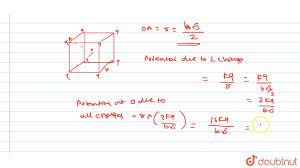 OA = r = b√3 / 2
Potential due to 1 charge
= Kq / r = Kq / b√3 / 2
= 2Kq / b√3
Potential at O due to
all charges = 8 × (2Kq / b√3) = 16Kq / b√3 =
doubtnut